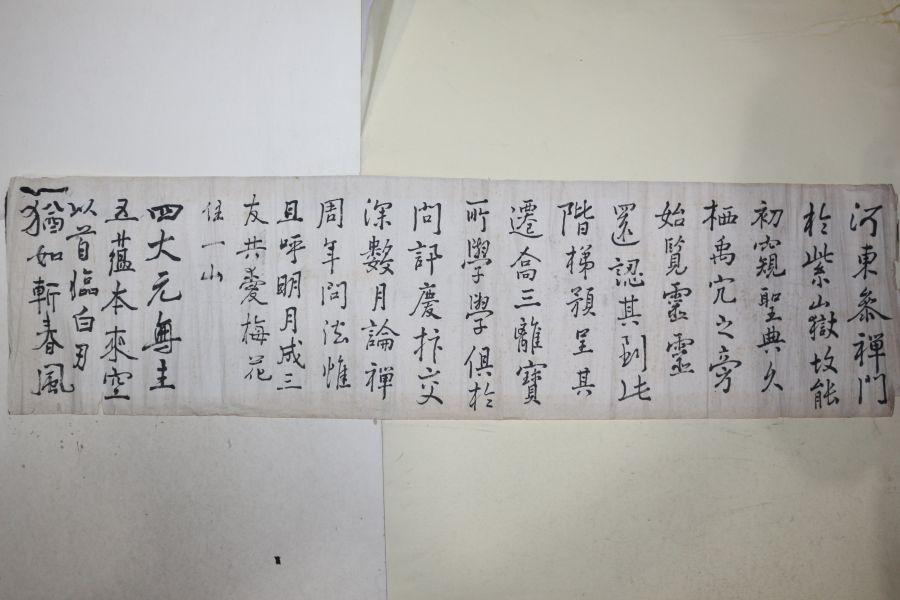 河東參禪門
於紫山嶽故能
初窺聖典久
栖禹穴之旁
始覽靈靈
還認其到此
階梯預呈其
遷喬三離寶
所學學俱於
問訊慶抃交
深數月論禪
周年問法惟
且呼明月成三
友共愛梅花
住一山
四大元無主
五蘊本來空
以首臨白刃
猶如斬春風